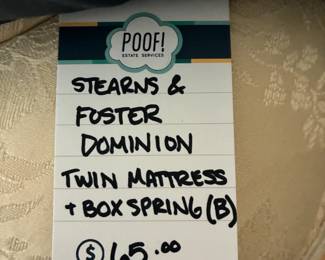 POOF!
ESTATE SERVICES
STEARNS &
FOSTER
DOMINION
TWIN MATTRESS
+ BOX SPRING (B)
$ 65.00